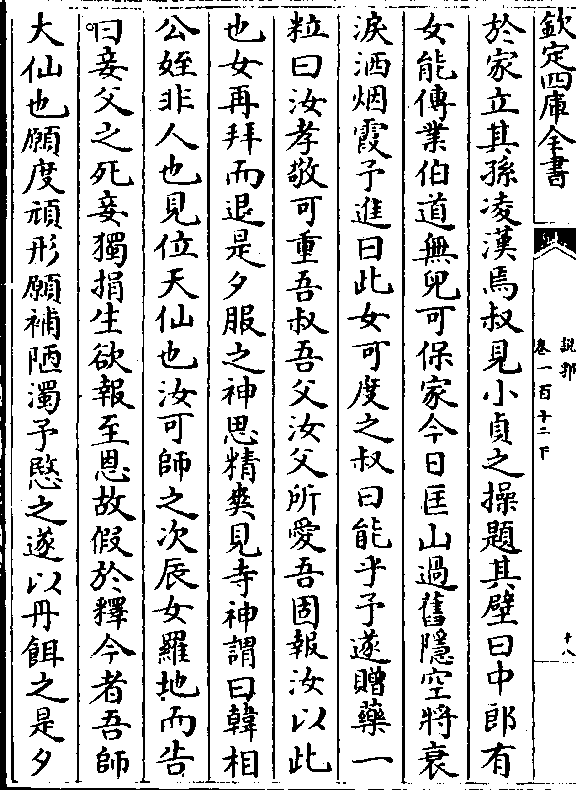 欽定四庫全書
說郛
卷一百十二下
十八
於家立其孫凌漢焉叔見小貞之操題其壁曰中郎有
女能傳業伯道無兒可保家今日匡山過舊隱空將衰
淚洒烟霞予進曰此女可度之叔曰能乎予遂贈藥一
粒曰汝孝敬可重吾叔吾父汝父所愛吾固報汝以此
也女再拜而退是夕服之神思精爽見寺神謂曰韓相
公姪非人也見位天仙也汝可師之次辰女羅地而告
曰妾父之死妾獨捐生欲報至恩故假於釋今者吾師
大仙也願度頑形願補陋濁予愍之遂以丹餌之是夕